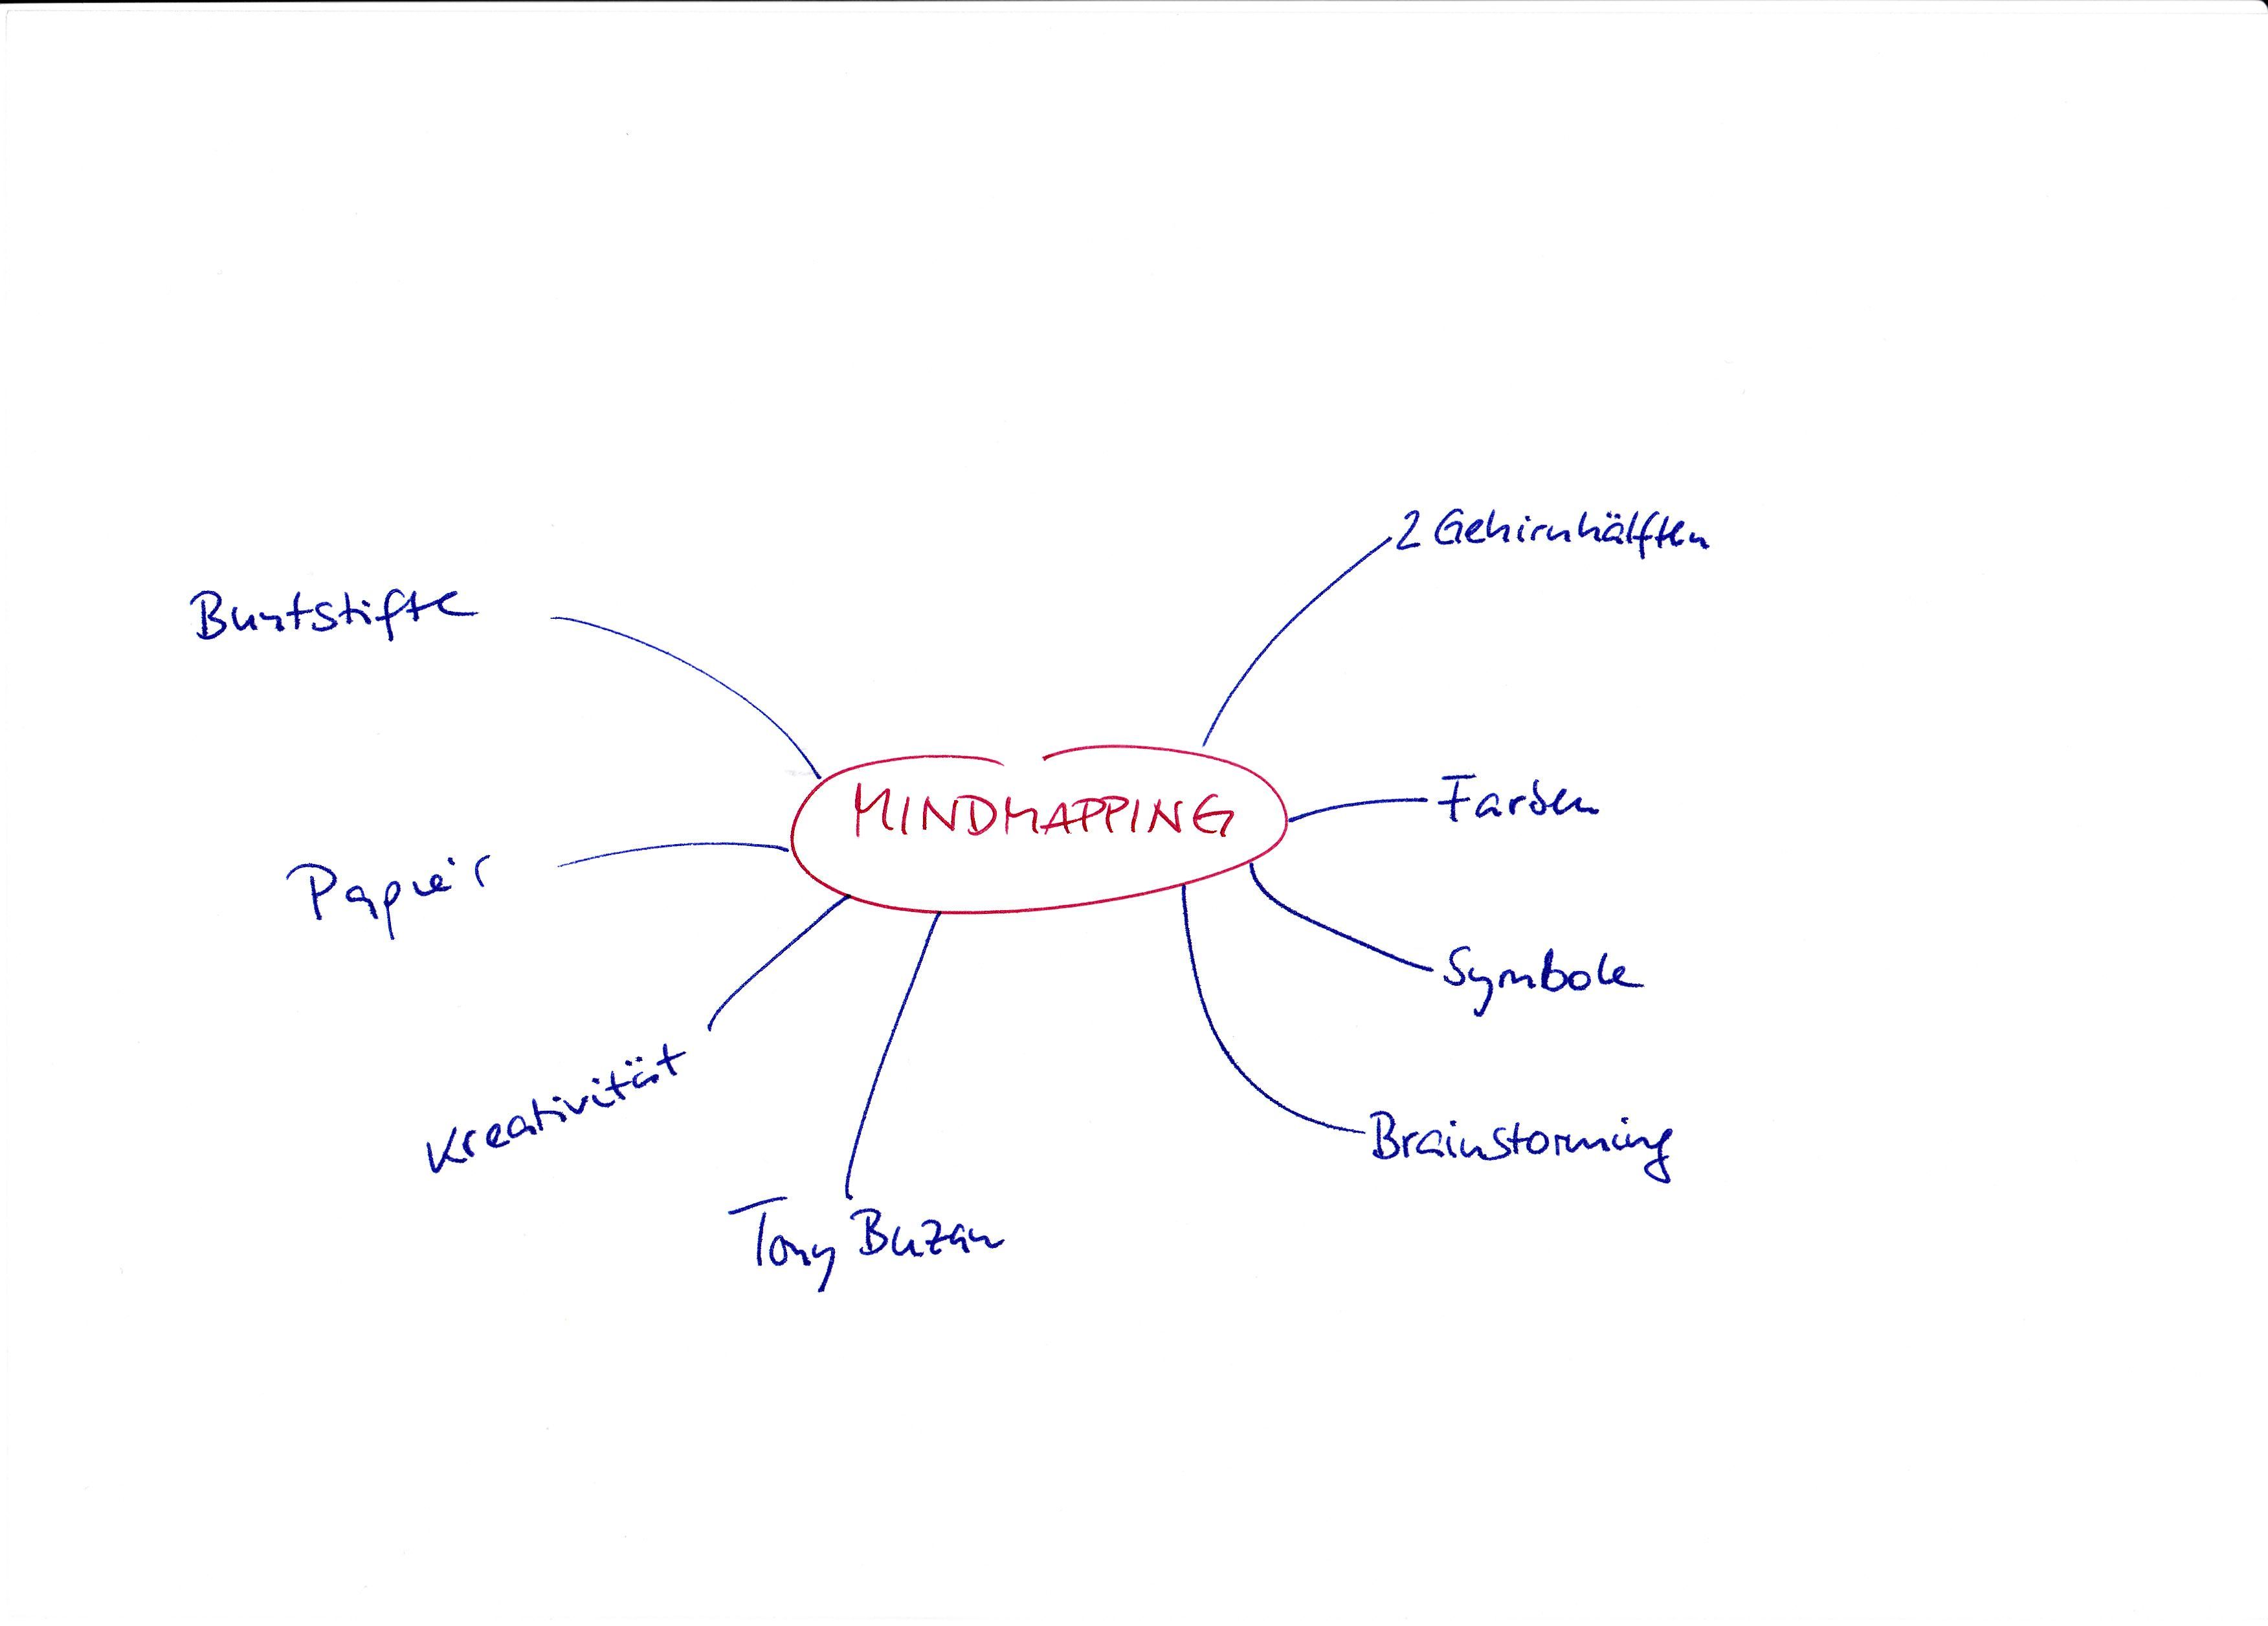 2 Gehirnhälften
Buntstifte
MINDMAPPING
Farben
Papier
Symbole
Kreativität
Brainstorming
Tony Buzan